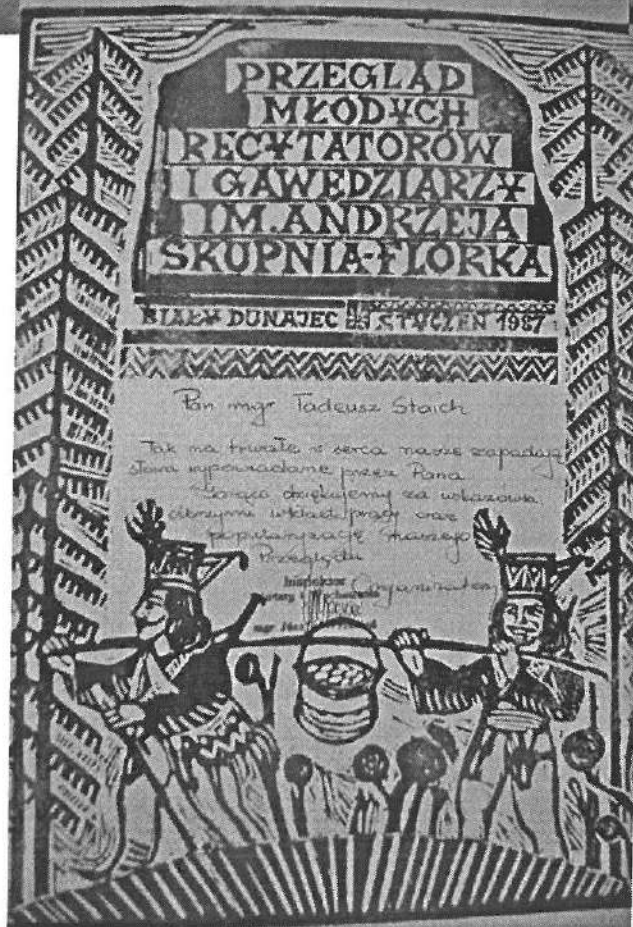 PRZEGLĄD
MŁODYCH
RECYTATORÓW
I GAWĘDZIARZY
IM. ANDRZEJA
SKUPNIA-FLORKA
BIAŁY DUNAJEC STYCZEŃ 1987
Pan mgr Tadeusz Staich
Tak na trwałe w serca nasze zapadają
słowa wypowiadane przez Pana
Gorąco dziękujemy za wskazówki
olbrzymi wkład pracy oraz
popularyzację naszego
Przeglądu
Organizatorzy
Inspektor
mgr